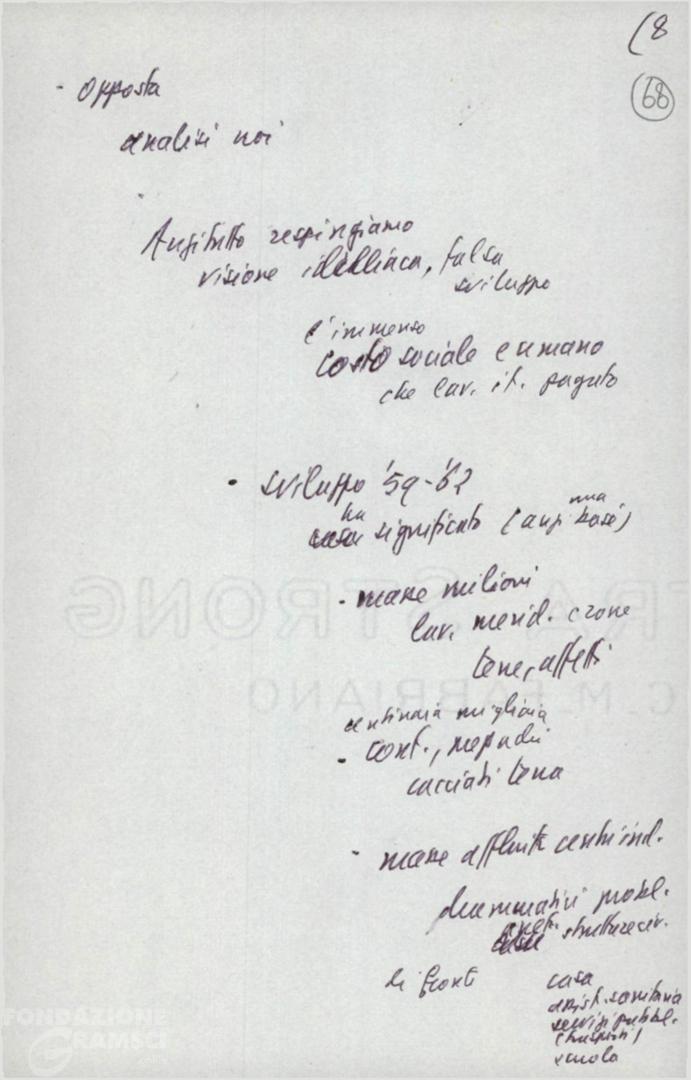 (8
68
- opposta
analisi noi
Anzitutto respingiamo
visione idilliaca, falsa
sviluppo
l'immenso
costo sociale e umano
che lav. it. pagato
- sviluppo '59-'62
ha
significato (anzi
- masse milioni
lav. merid. e zone
terre, affetti
centinaia migliaia
- cont., mezzadri
cacciati terra
- masse affluite centri ind.
drammatici probl.
arret. strutture civ.
di fronte
casa
assist. sanitaria
servizi pubbl.
(trasporti)
scuola
TRA STRONG
C.M. FABRIANO
FONDAZIONE
GRAMSCI